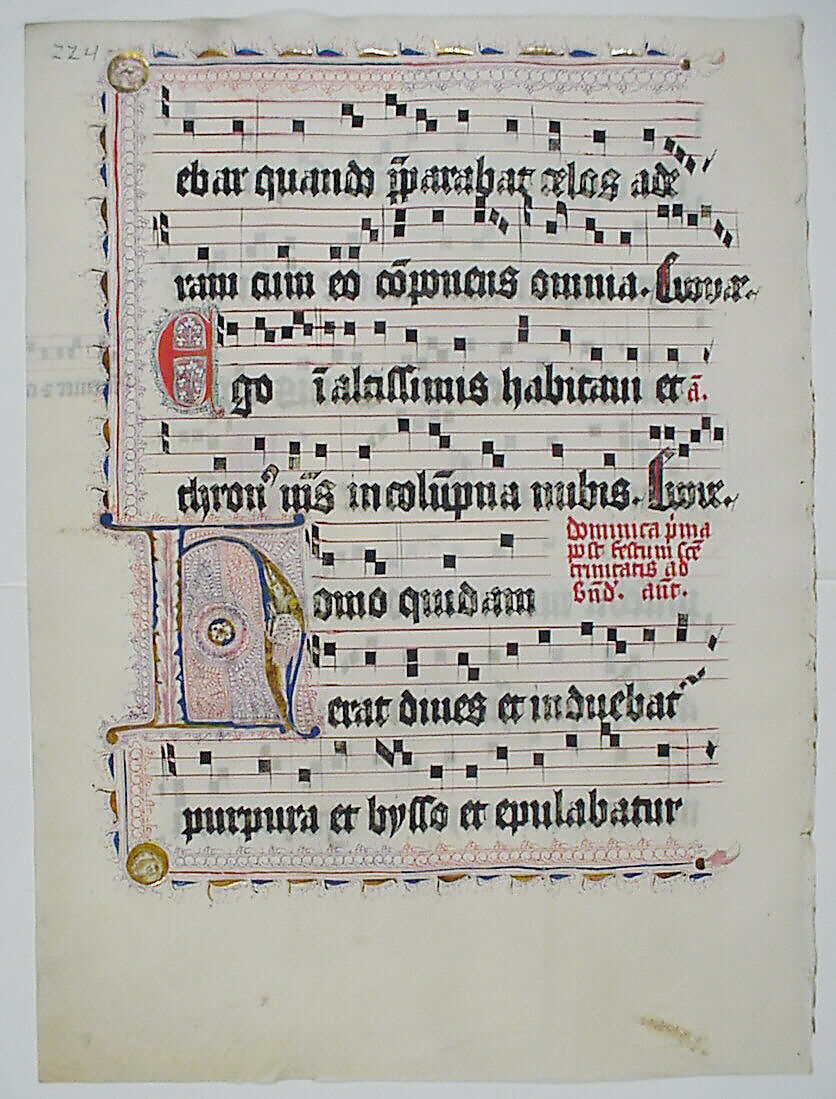 224
ebar quando p̄parabat celos ade
ram cum eo cōponens omnia. Luya.
Ego ī altissimis habitaui et a.
thron' m̄s in colūpna nubis. Luya.
Homo quidam
dominica p̄ma
post festum sce
trinitatis ad
bn̄d'. ant.
erat diues et induebat
purpura et bysso et epulabatur